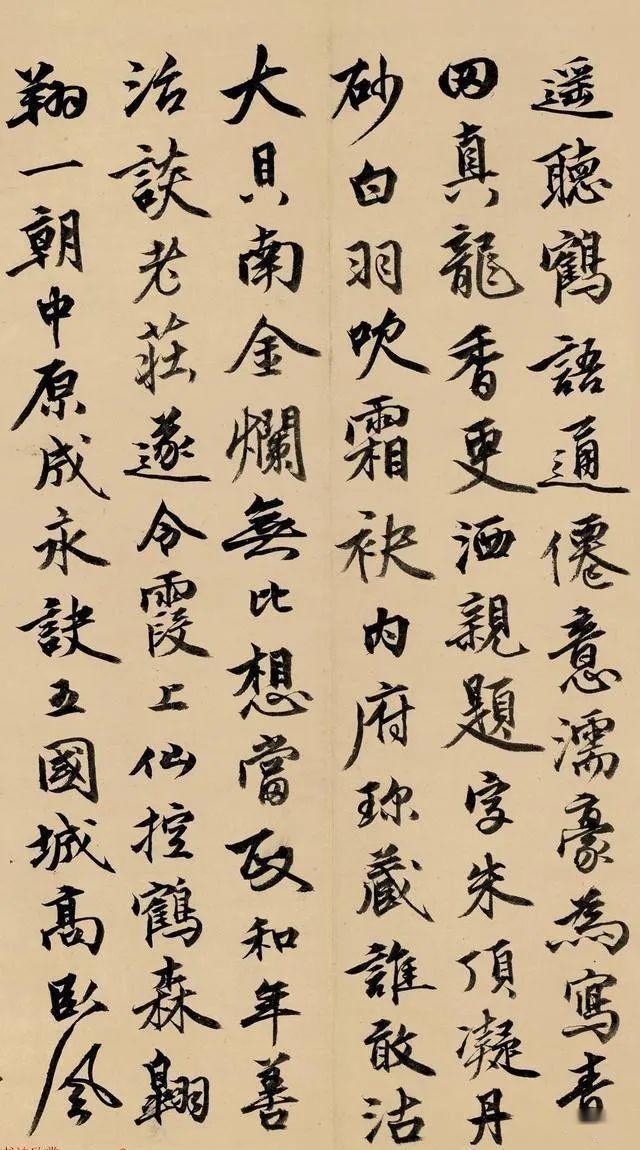 遥聽鶴語通僊意濡豪為寫青
田真龍香更洒親題字朱頂凝丹
砂白羽吹霜袂内府珎藏誰敢沽
大貝南金爛無比想當政和年善
治談老莊遂令霞上仙控鶴森翱
翔一朝中原成永訣五國城髙臥風